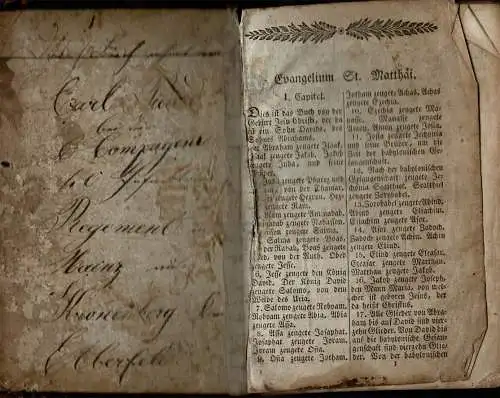 Carl
Compagnie
Regement
Mainz
Kronenberg
Elberfeld
Evangelium St. Matthäi.
1. Capitel.
Dies ist das Buch von der
Geburt Jesu Christi, der da
ist ein Sohn Davids, des
Sohns Abrahams.
Abraham zeugete Isaak.
Isaak zeugete Jakob. Jakob
zeugete Juda, und seine
Brüder.
Juda zeugete Pharez und
von der Thamar.
zeugete Hezron. Hez-
zeugete Ram.
Ram zeugete Aminadab.
zeugete Nahasson.
zeugete Salma.
Salma zeugete Boas,
der Rahab. Boas zeugete
von der Ruth. Obed
zeugete Jesse.
6. Jesse zeugete den König
David. Der König David
zeugete Salomo, von dem
Weibe des Uria.
7. Salomo zeugete Roboam.
Roboam zeugete Abia. Abia
zeugete Assa.
8. Assa zeugete Josaphat.
Josaphat zeugete Joram.
Joram zeugete Osia.
9. Osia zeugete Jotham.
Jotham zeugete Achas. Achas
zeugete Ezechia.
10. Ezechia zeugete Ma-
nasse. Manasse zeugete
Amon. Amon zeugete Josia.
11. Josia zeugete Jechonia
und seine Brüder, um die
Zeit der babylonischen Ge-
fangenschaft.
12. Nach der babylonischen
Gefangenschaft zeugete Je-
chonia Sealthiel. Sealthiel
zeugete Zorobabel.
13. Zorobabel zeugete Abiud.
Abiud zeugete Eliachim.
Eliachim zeugete Asor.
14. Asor zeugete Zadoch.
Zadoch zeugete Achim. Achim
zeugete Eliud.
15. Eliud zeugete Eleasar.
Eleasar zeugete Matthan.
Matthan zeugete Jakob.
16. Jakob zeugete Joseph,
den Mann Maria, von wel-
cher ist geboren Jesus, der
da heißt Christus.
17. Alle Glieder von Abra-
ham bis auf David sind vier-
zehn Glieder. Von David bis
auf die babylonische Gefan-
genschaft sind vierzehn Glie-
der. Von der babylonischen